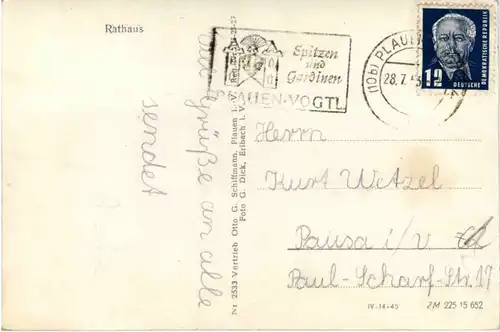 Rathaus
Viele Grüße an alle
sendet
Nr 2533 Vertrieb Otto G. Schiffmann, Plauen i. V.
Foto G. Dick, Erlbach i.
Spitzen
und
Gardinen
PLAUEN-VOGTL
(10b) PLAUEN
28.7.5
DEUTSCHE DEMOKRATISCHE REPUBLIK
12
DEUTSCHE
Herrn
Kurt Wetzel
Pausa i/v
Paul-Scharf-Str. 17
IV-14-45
ZM 225 15 652